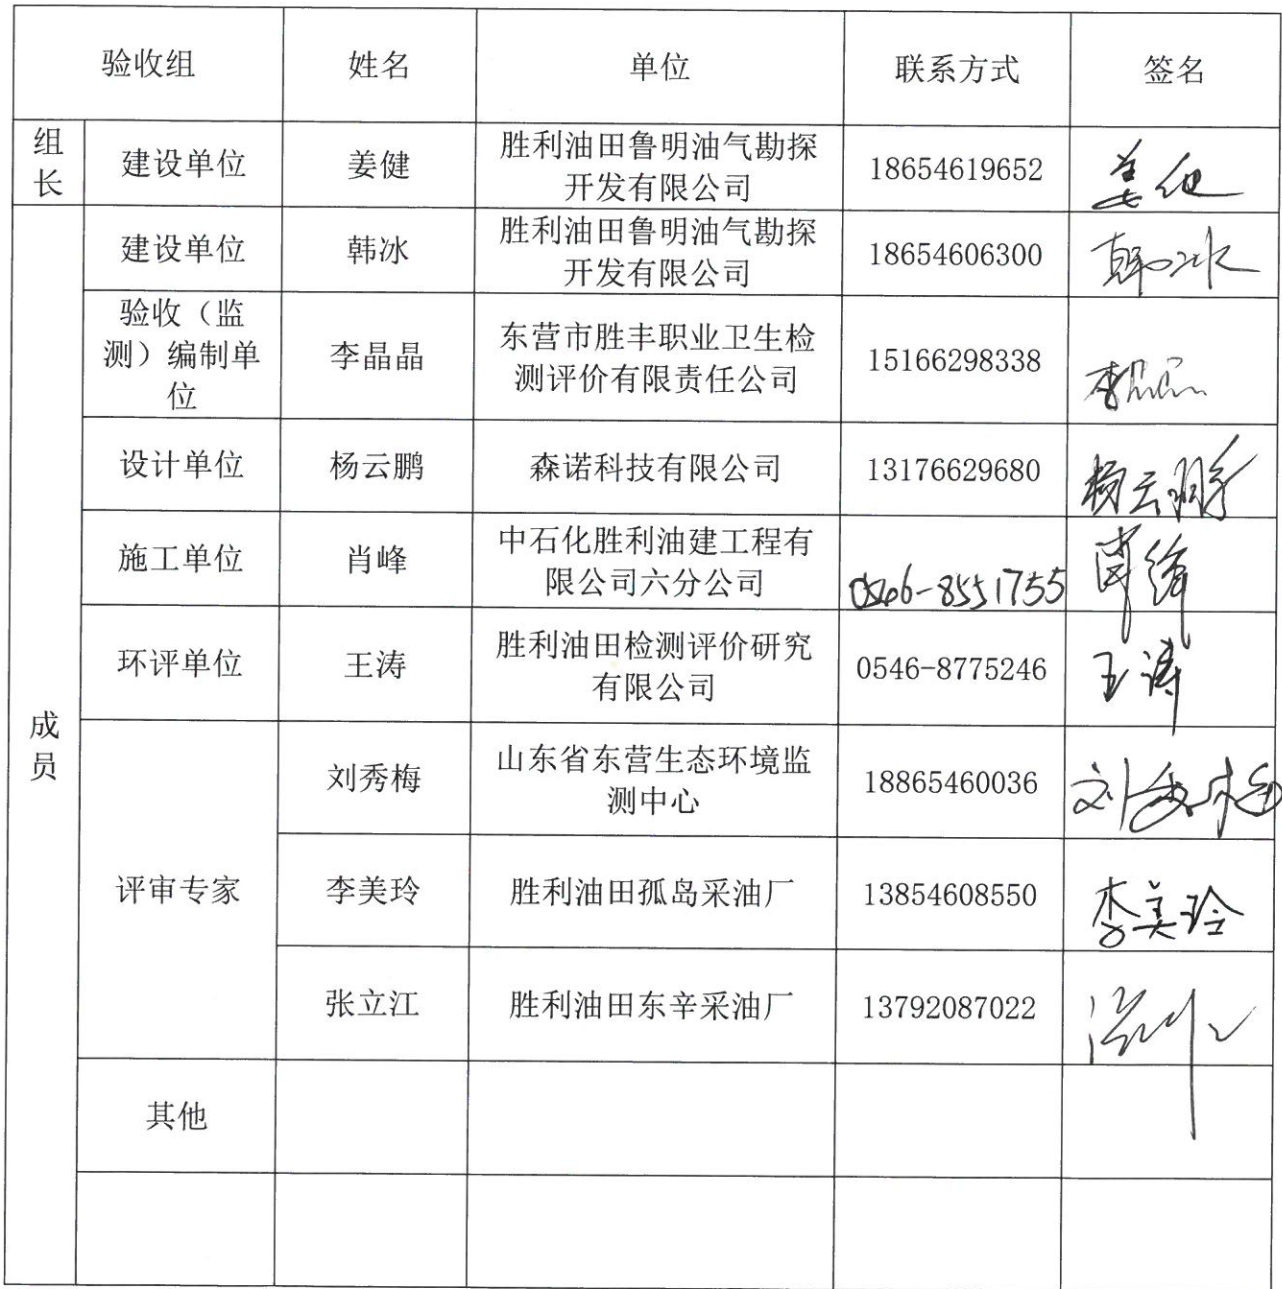 验收组 姓名 单位 联系方式 签名
组长 建设单位 姜健 胜利油田鲁明油气勘探
开发有限公司 18654619652
成员 建设单位 韩冰 胜利油田鲁明油气勘探
开发有限公司 18654606300 韩冰
验收（监
测）编制单
位 李晶晶 东营市胜丰职业卫生检
测评价有限责任公司 15166298338 李晶晶
设计单位 杨云鹏 森诺科技有限公司 13176629680 杨云鹏
施工单位 肖峰 中石化胜利油建工程有
限公司六分公司 0546-8551755
环评单位 王涛 胜利油田检测评价研究
有限公司 0546-8775246 王涛
评审专家 刘秀梅 山东省东营生态环境监
测中心 18865460036 刘秀梅
李美玲 胜利油田孤岛采油厂 13854608550 李美玲
张立江 胜利油田东辛采油厂 13792087022
其他